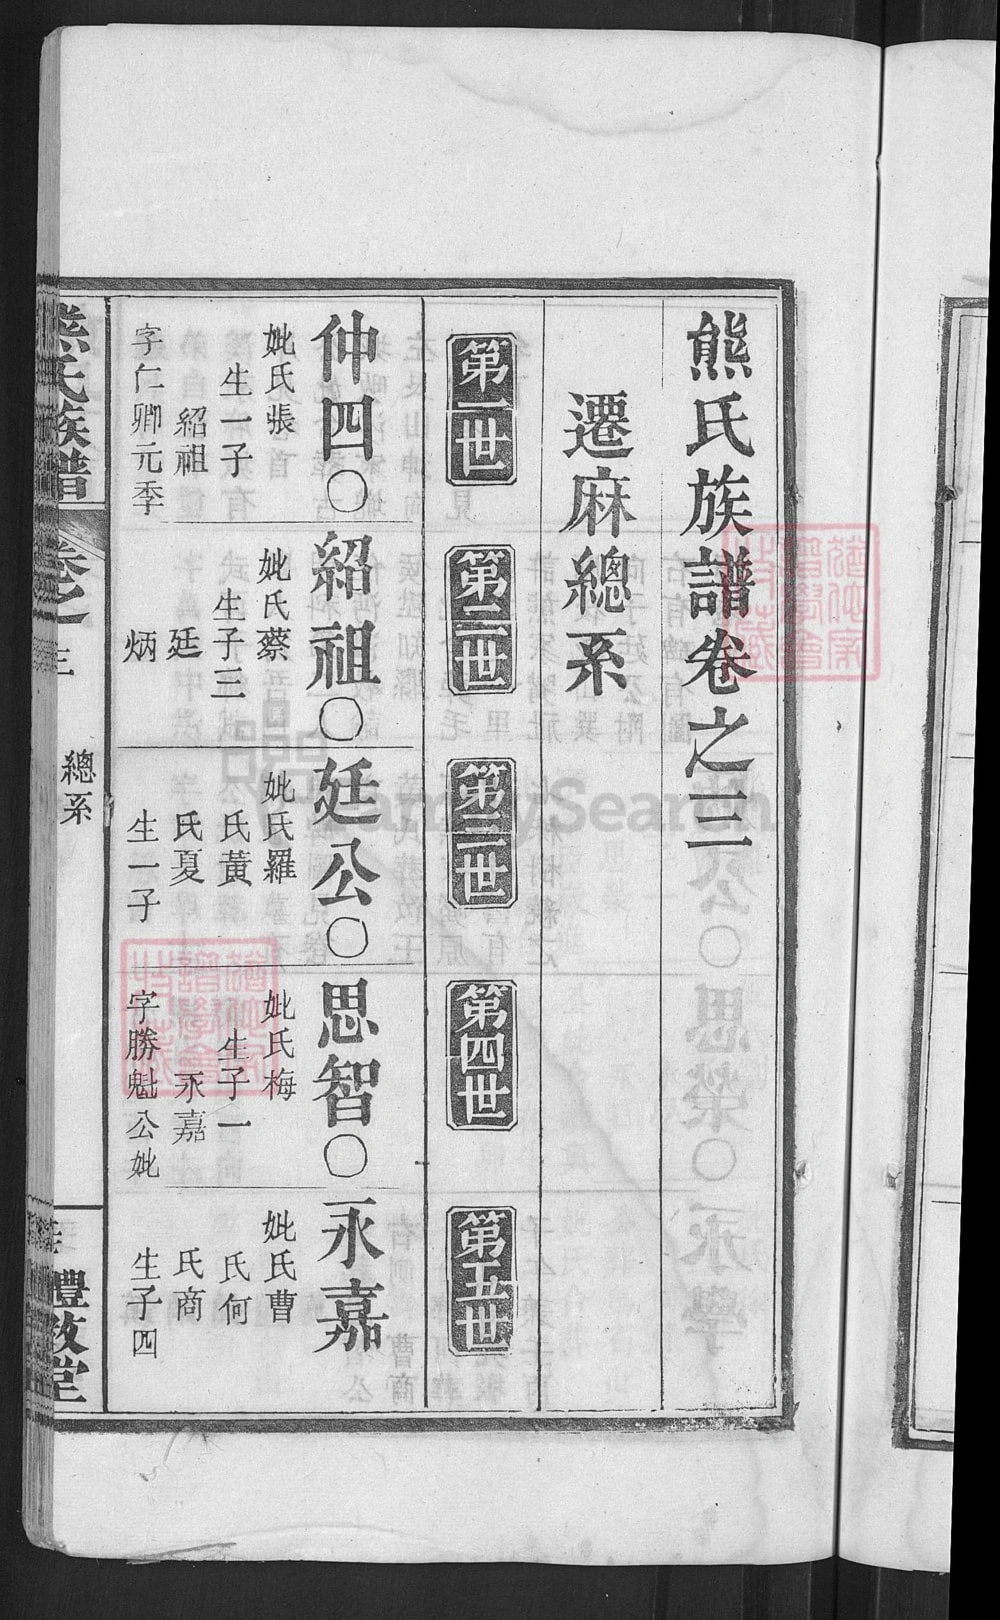 熊氏族譜卷之三
遷麻總系
第一世
第二世
第三世
第四世
第五世
仲四〇
妣氏張
生一子
紹祖
字仁卿元季
紹祖〇
妣氏蔡
生子三
廷
炳
廷公〇
妣氏羅
氏黃
氏夏
生一子
思智〇
妣氏梅
生子一
永嘉
字勝魁公妣
永嘉
妣氏曹
氏何
氏商
生子四
熊氏族譜
卷之三
總系
禮教堂
FamilySearch